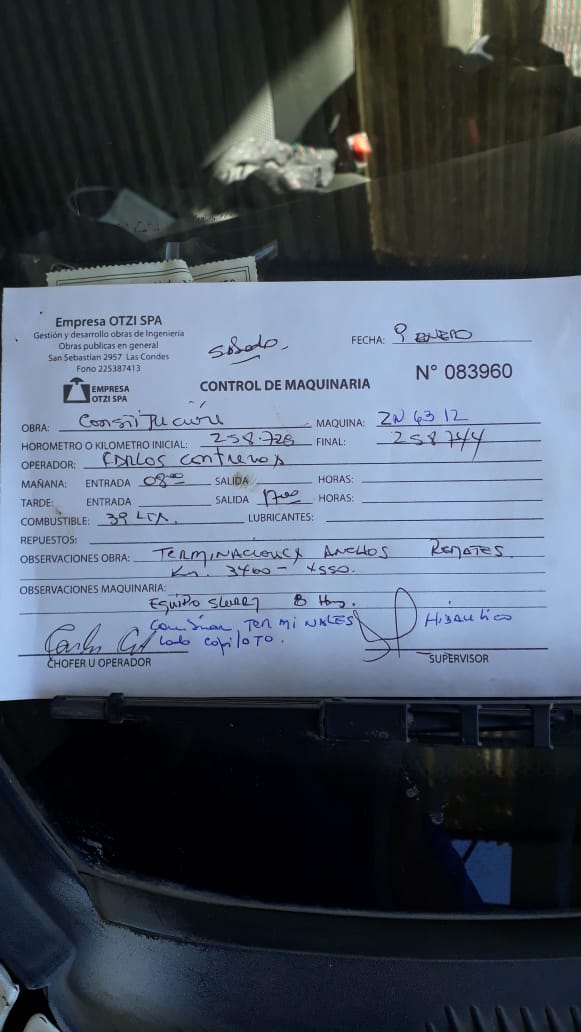 Empresa OTZI SPA
Gestión y desarrollo obras de Ingenieria
Obras publicas en general
San Sebastian 2957 Las Condes
Fono 225387413
EMPRESA
OTZI SPA
Sabado.
FECHA: 9 ENERO
CONTROL DE MAQUINARIA
N° 083960
OBRA: MAQUINA: ZN 63 12
HOROMETRO O KILOMETRO INICIAL: 258.728 FINAL: 258744
OPERADOR: Carlos Contreras
MAÑANA: ENTRADA 08:00 SALIDA HORAS:
TARDE: ENTRADA SALIDA 17:00 HORAS:
COMBUSTIBLE: 39 LTR. LUBRICANTES:
REPUESTOS:
OBSERVACIONES OBRA: TERMINACIONES ANCHOS REMATES.
Km. 3460 - 4550.
OBSERVACIONES MAQUINARIA:
EQUIPO SLURRY 8 Hrs.
TERMINALES HIDRAULICO
lado copiloTO.
CHOFER U OPERADOR
SUPERVISOR